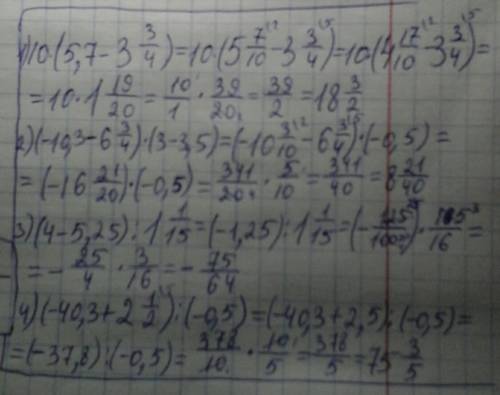 1) 10·(5,7-3 3/4)=10·(5 7/10 -3 3/4)=10·(4 17/10 -3 3/4)=
=10·1 19/20 = 10/1 · 39/20 = 39/2 = 18 3/2
2) (-10,3-6 3/4)·(3-3,5)=(-10 3/10 -6 3/4)·(-0,5)=
=(-16 21/20)·(-0,5)= 341/20 · 5/10 = 341/40 = 8 21/40
3) (4-5,25):1 1/15 =(-1,25):1 1/15 =(- 125/100)· 15/16 =
=- 25/4 · 3/16 =- 75/64
4) (-40,3+2 1/2):(-0,5)=(-40,3+2,5):(-0,5)=
=(-37,8):(-0,5)= 378/10 · 10/5 = 378/5 = 75 3/5